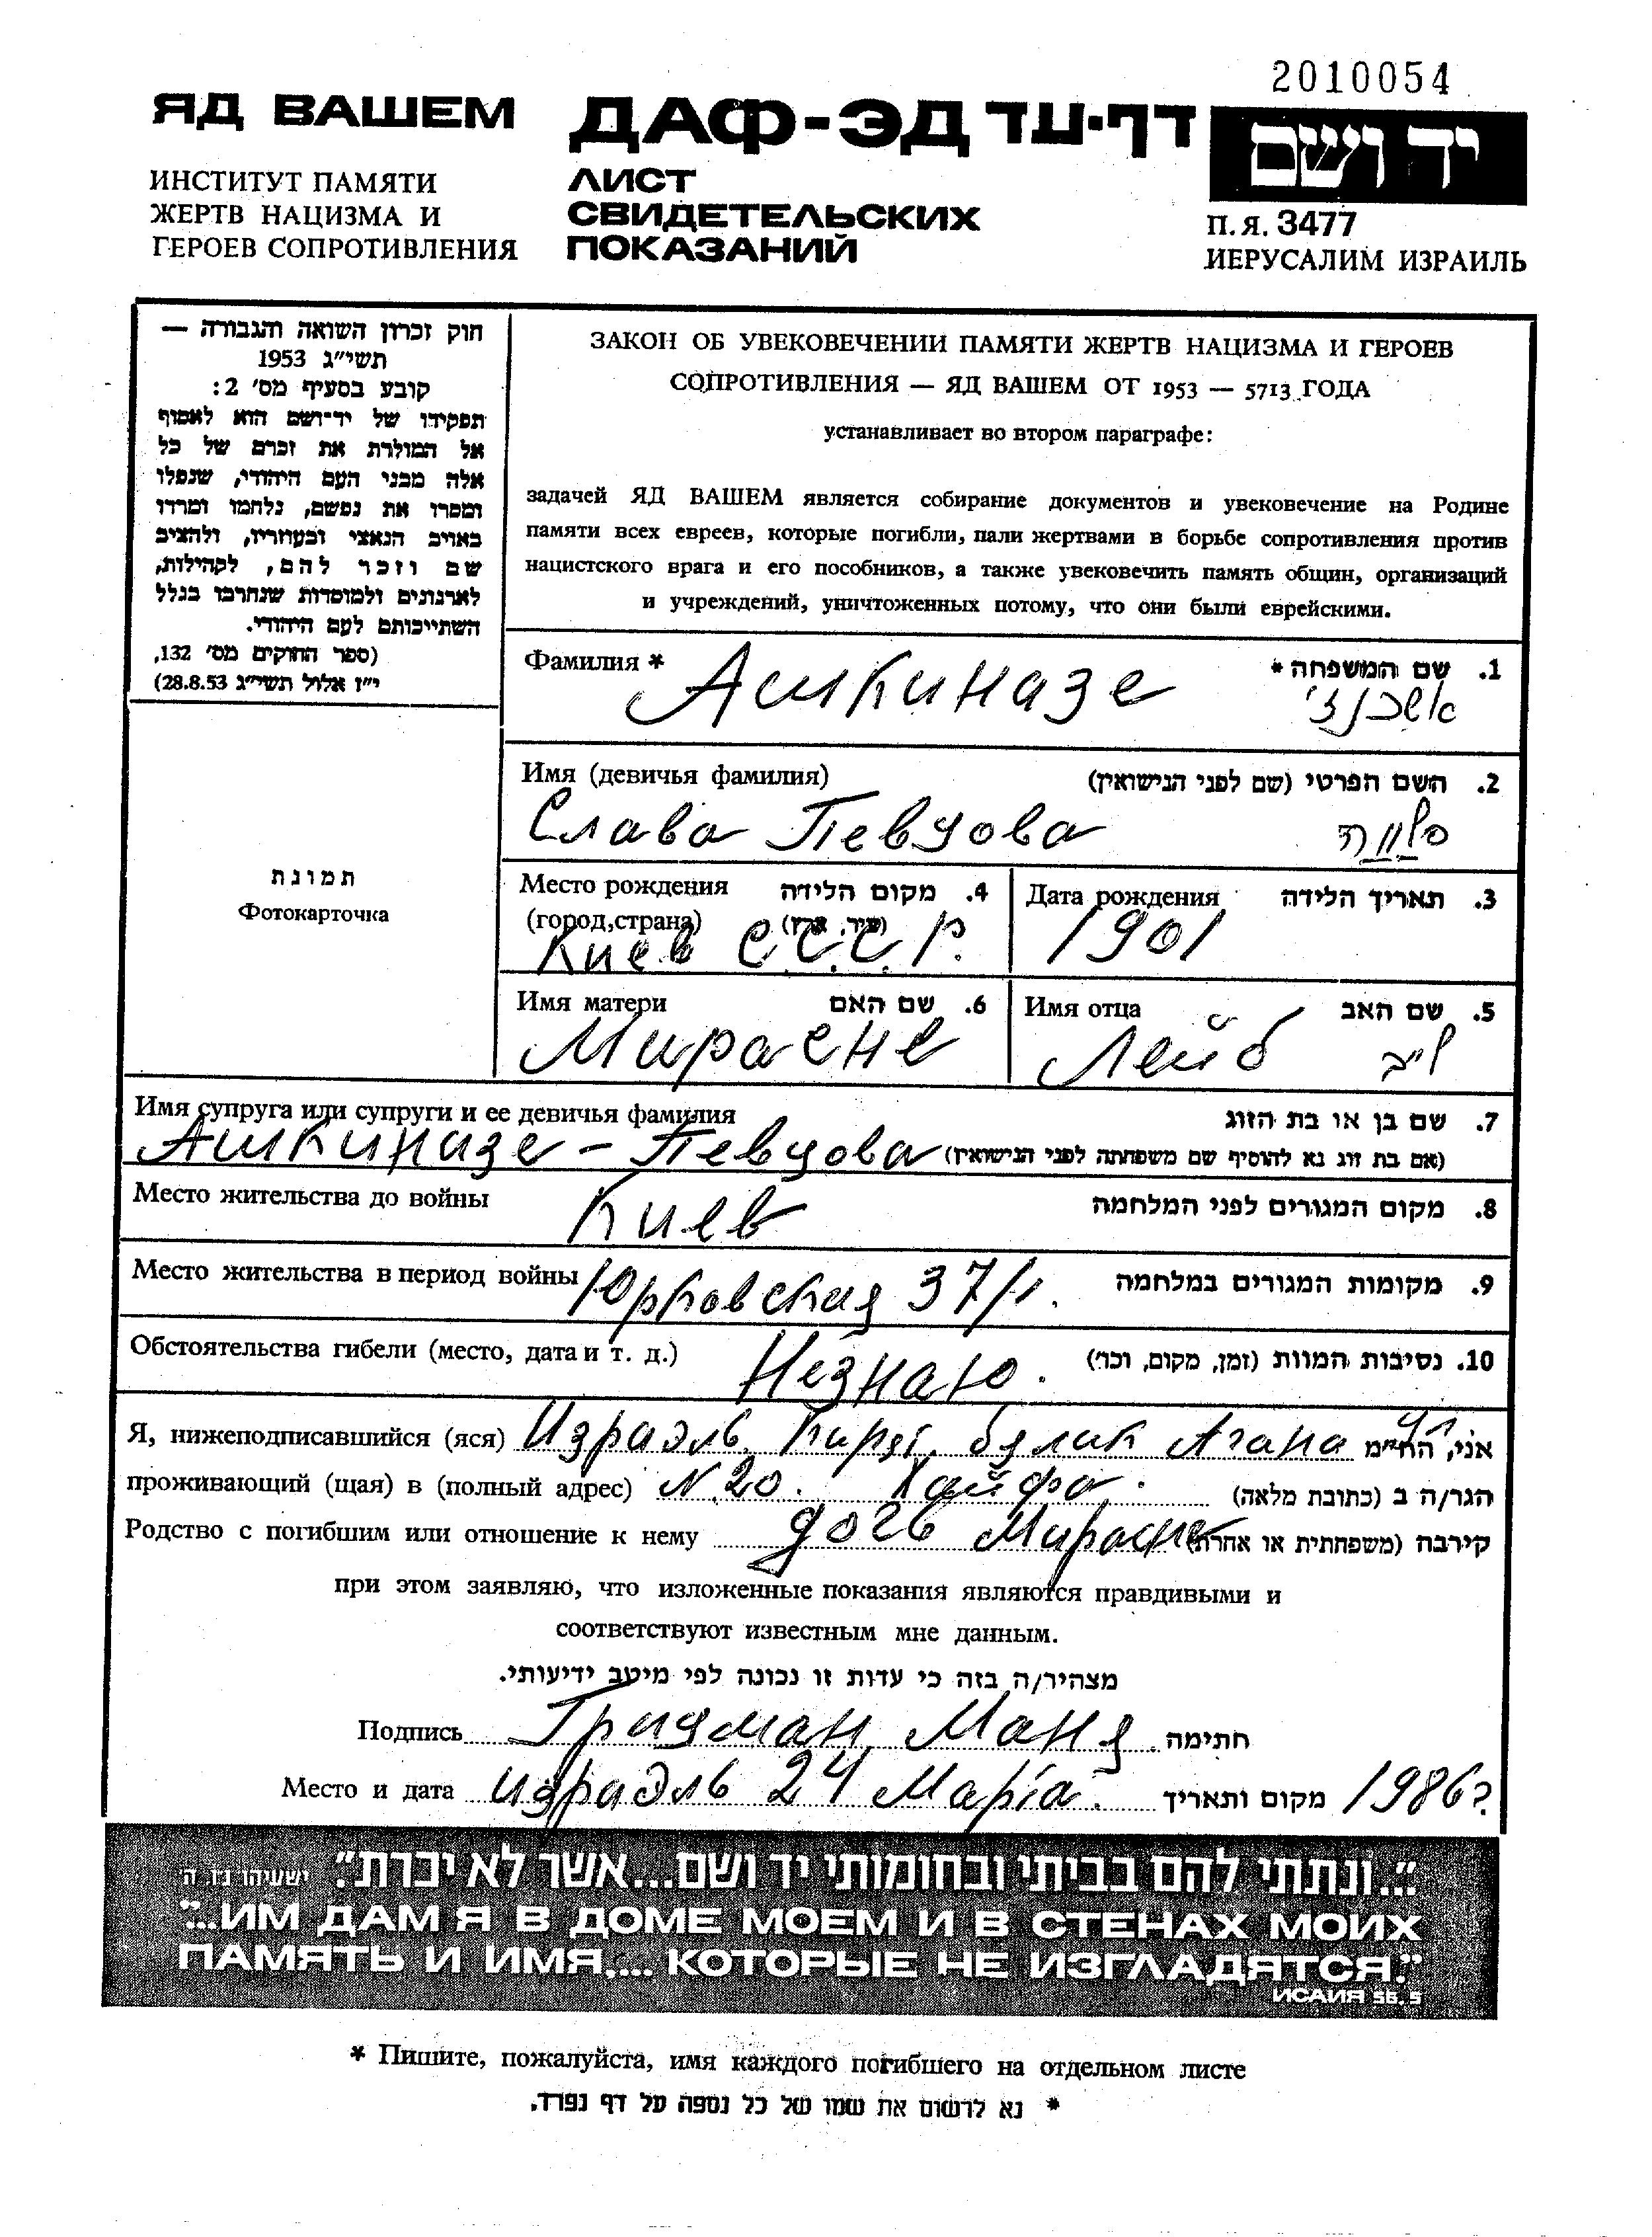 2010054
ЯД ВАШЕМ
ДАФ-ЭД דף-עד
יד ושם
ИНСТИТУТ ПАМЯТИ
ЖЕРТВ НАЦИЗМА И
ГЕРОЕВ СОПРОТИВЛЕНИЯ
ЛИСТ
СВИДЕТЕЛЬСКИХ
ПОКАЗАНИЙ
П.Я. 3477
ИЕРУСАЛИМ ИЗРАИЛЬ
חוק זכרון השואה והגבורה —
תשי״ג 1953
קובע בסעיף מס׳ 2:
תפקידו של יד־ושם הוא לאסוף
אל המולדת את זכרם של כל
אלה מבני העם היהודי, שנפלו
ומסרו את נפשם, נלחמו ומרדו
באויב הנאצי ובעוזריו, ולהציב
שם וזכר להם, לקהילות,
לארגונים ולמוסדות שנחרבו בגלל
השתייכותם לעם היהודי.
(ספר החוקים מס׳ 132,
י״ז אלול תשי״ג 28.8.53)
ЗАКОН ОБ УВЕКОВЕЧЕНИИ ПАМЯТИ ЖЕРТВ НАЦИЗМА И ГЕРОЕВ
СОПРОТИВЛЕНИЯ — ЯД ВАШЕМ ОТ 1953 — 5713 ГОДА
устанавливает во втором параграфе:
задачей ЯД ВАШЕМ является собирание документов и увековечение на Родине
памяти всех евреев, которые погибли, пали жертвами в борьбе сопротивления против
нацистского врага и его пособников, а также увековечить память общин, организаций
и учреждений, уничтоженных потому, что они были еврейскими.
Фамилия * 1. שם המשפחה*
Ашкиназе אשכנזי
Имя (девичья фамилия) 2. השם הפרטי (שם לפני הנישואין)
Слава Певцова סלווה
תמונת
Фотокарточка
Место рождения 4. מקום הלידה
(город,страна) (עיר, ארץ)
Киев С.С.С.Р.
Дата рождения 3. תאריך הלידה
1901
Имя матери 6. שם האם
Мирасне
Имя отца 5. שם האב
Лейб לייב
Имя супруга или супруги и ее девичья фамилия 7. שם בן או בת הזוג
Ашкиназе - Певцова (אם בת זוג נא להוסיף שם משפחתה לפני הנישואין)
Место жительства до войны Киев 8. מקום המגורים לפני המלחמה
Место жительства в период войны Юрковская 37/1. 9. מקומות המגורים במלחמה
Обстоятельства гибели (место, дата и т. д.) Незнаю. 10. נסיבות המוות (זמן, מקום, וכו׳)
Я, нижеподписавшийся (яся) Израэль. Киря. бялик Агана אני, הח״מ
проживающий (щая) в (полный адрес) N.20. Хайфа. הגר/ה ב (כתובת מלאה)
Родство с погибшим или отношение к нему дочь Мирасне קירבה (משפחתית או אחרת)
при этом заявляю, что изложенные показания являются правдивыми и
соответствуют известным мне данным.
מצהיר/ה בזה כי עדות זו נכונה לפי מיטב ידיעותי.
Подпись Маня חתימה
Место и дата израэль 24 Марта. מקום ותאריך 1986?
״...ונתתי להם בביתי ובחומותי יד ושם...אשר לא יכרת״. ישעיהו נ״ו, ה׳
"...ИМ ДАМ Я В ДОМЕ МОЕМ И В СТЕНАХ МОИХ
ПАМЯТЬ И ИМЯ.... КОТОРЫЕ НЕ ИЗГЛАДЯТСЯ."
ИСАИЯ 56.5
* Пишите, пожалуйста, имя каждого погибшего на отдельном листе
* נא לרשום את שמו של כל נספה על דף נפרד.